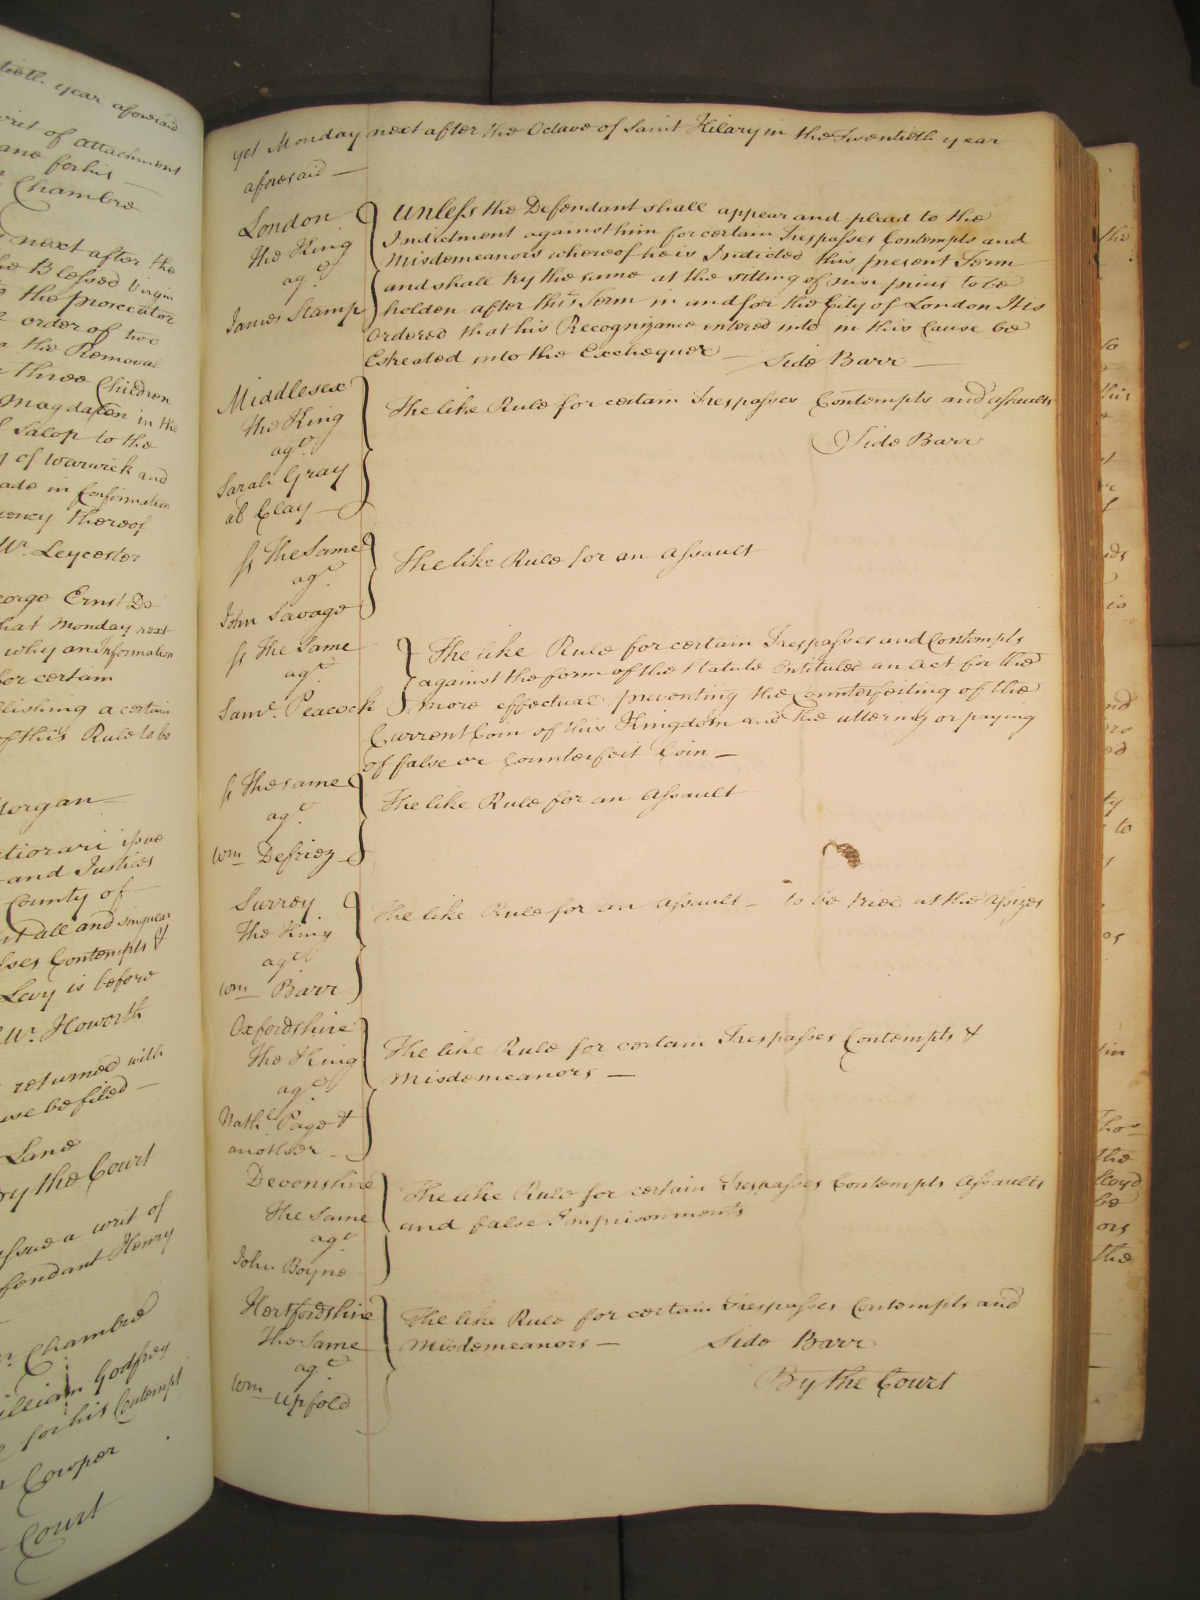 tieth year aforesaid
writ of attachment
and for his
Chambre
next after the
the Blessed Virgin
the prosecutor
order of two
the Removal
three Children
Magdalen in the
Salop to the
of Warwick and
made in Confirmation
thereof
Mr. Leycester
George Ernst De
that Monday next
why an Information
for certain
publishing a certain
of this Rule to be
Morgan
Certiorari issue
and Justices
County of
all and singular
Contempts &
Levy is before
Mr. Howorth
returned with
be filed
Lane
By the Court
issue a writ of
Defendant Henry
Mr. Chambre
William Godfrey
for his Contempt
Cowper
Court
Yet Monday next after the Octave of Saint Hilary in the Twentieth year
aforesaid —
London
The King
agt.
James Stamp
Unless the Defendant shall appear and plead to the
Indictment against him for certain Trespasses Contempts and
Misdemeanors whereof he is Indicted this present Term
and shall try the same at the sitting of nisi prius to be
holden after this Term in and for the City of London It is
Ordered that his Recognizance entered into in this Cause be
Estreated into the Exchequer — Side Barr —
Middlesex
The King
agt.
Sarah Gray
als Clay —
The like Rule for certain Trespasses Contempts and assaults
Side Barr
ss The Same
agt.
John Savage
The like Rule for an Assault
ss The Same
agt.
Saml. Peacock
The like Rule for certain Trespasses and Contempts
against the form of the Statute Entituled an Act for the
more effectual preventing the Counterfeiting of the
Current Coin of this Kingdom and the uttering or paying
of false or Counterfeit Coin —
ss The same
agt.
Wm Defriez
The like Rule for an Assault
Surrey
The King
agt.
Wm Barr
The like Rule for an Assault — to be tried at the Assizes
Oxfordshire
The King
agt.
Nathl. Page &
another —
The like Rule for certain Trespasses Contempts &
Misdemeanors —
Devonshire
The Same
agt.
John Boyne
The like Rule for certain Trespasses Contempts Assaults
and false Imprisonments
Hertfordshire
The Same
agt.
Wm Upfold
The like Rule for certain Trespasses Contempts and
Misdemeanors — Side Barr
By the Court